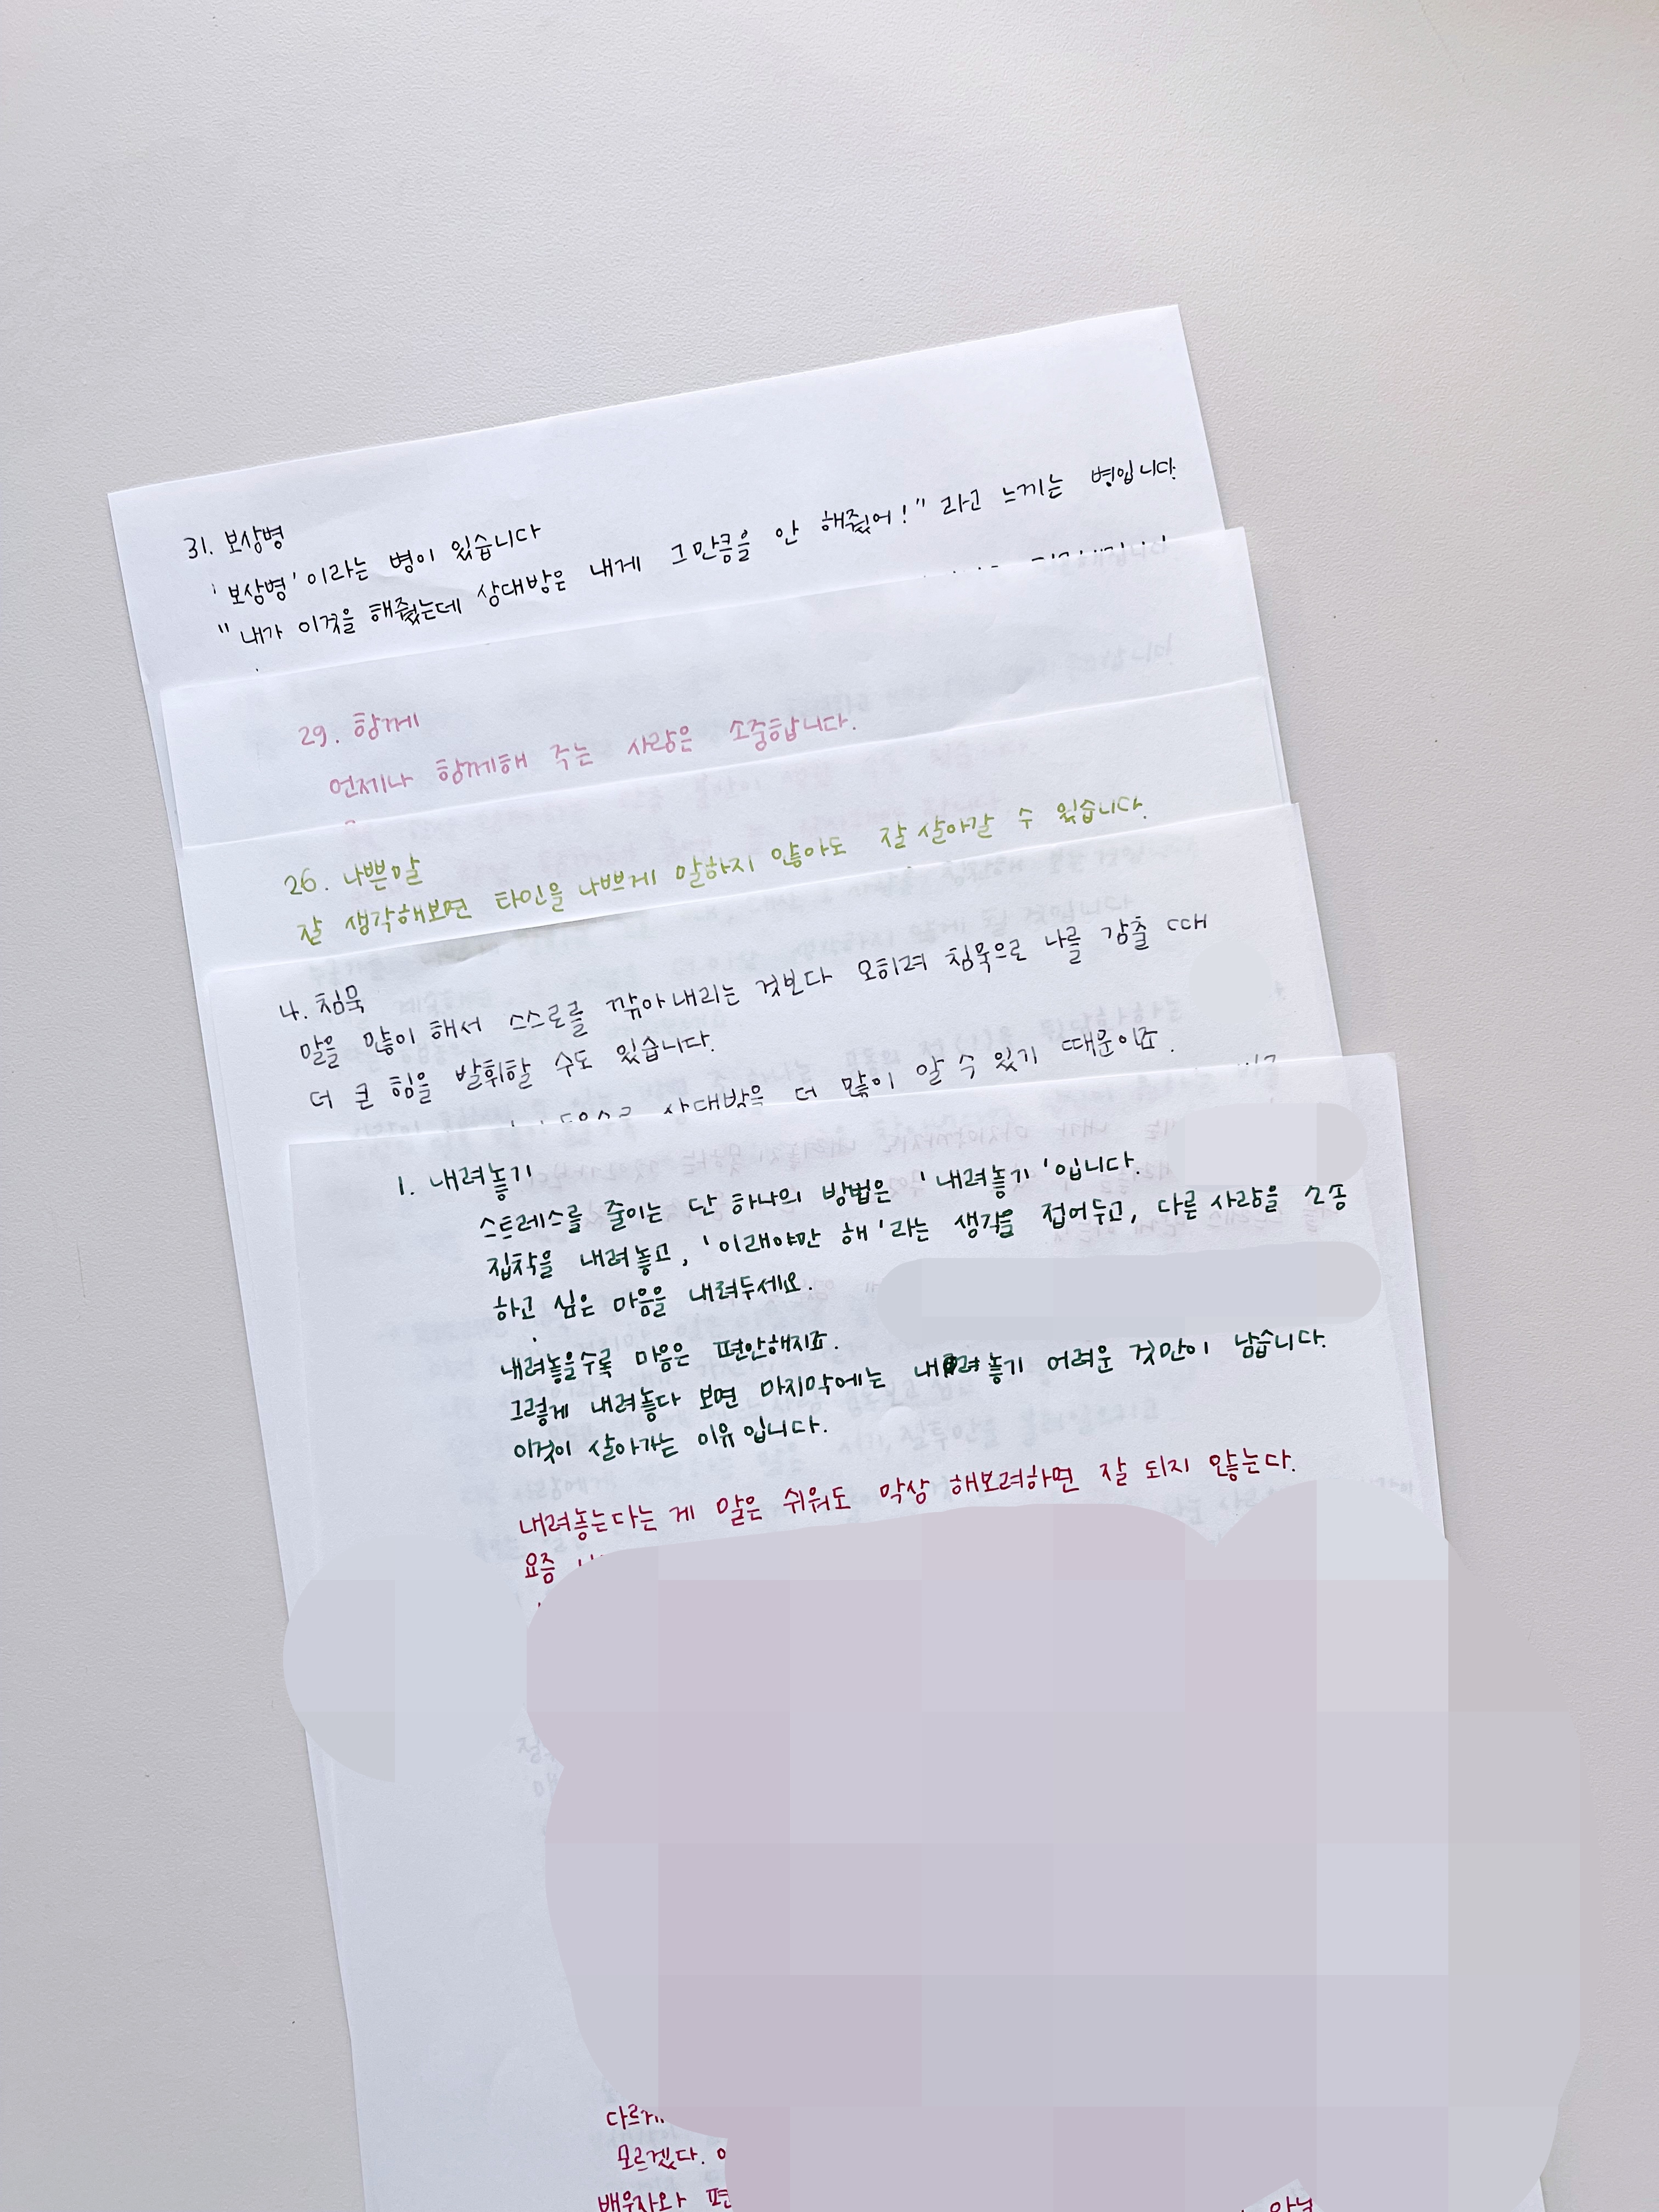 31. 보상병
'보상병'이라는 병이 있습니다
"내가 이것을 해줬는데 상대방은 내게 그만큼을 안 해줬어!" 라고 느끼는 병입니다.
29. 함께
언제나 함께해 주는 사람은 소중합니다.
26. 나쁜말
잘 생각해보면 타인을 나쁘게 말하지 않아도 잘 살아갈 수 있습니다.
4. 침묵
말을 많이 해서 스스로를 깎아내리는 것보다 오히려 침묵으로 나를 감출 때
더 큰 힘을 발휘할 수도 있습니다.
상대방을 더 많이 알 수 있기 때문이죠.
1. 내려놓기
스트레스를 줄이는 단 하나의 방법은 '내려놓기'입니다.
집착을 내려놓고, '이래야만 해'라는 생각을 접어두고, 다른 사람을 조종
하고 싶은 마음을 내려두세요.
내려놓을수록 마음은 편안해지죠.
그렇게 내려놓다 보면 마지막에는 내려놓기 어려운 것만이 남습니다.
이것이 살아가는 이유입니다.
내려놓는다는 게 말은 쉬워도 막상 해보려하면 잘 되지 않는다.
요즘
모르겠다.
배우자와